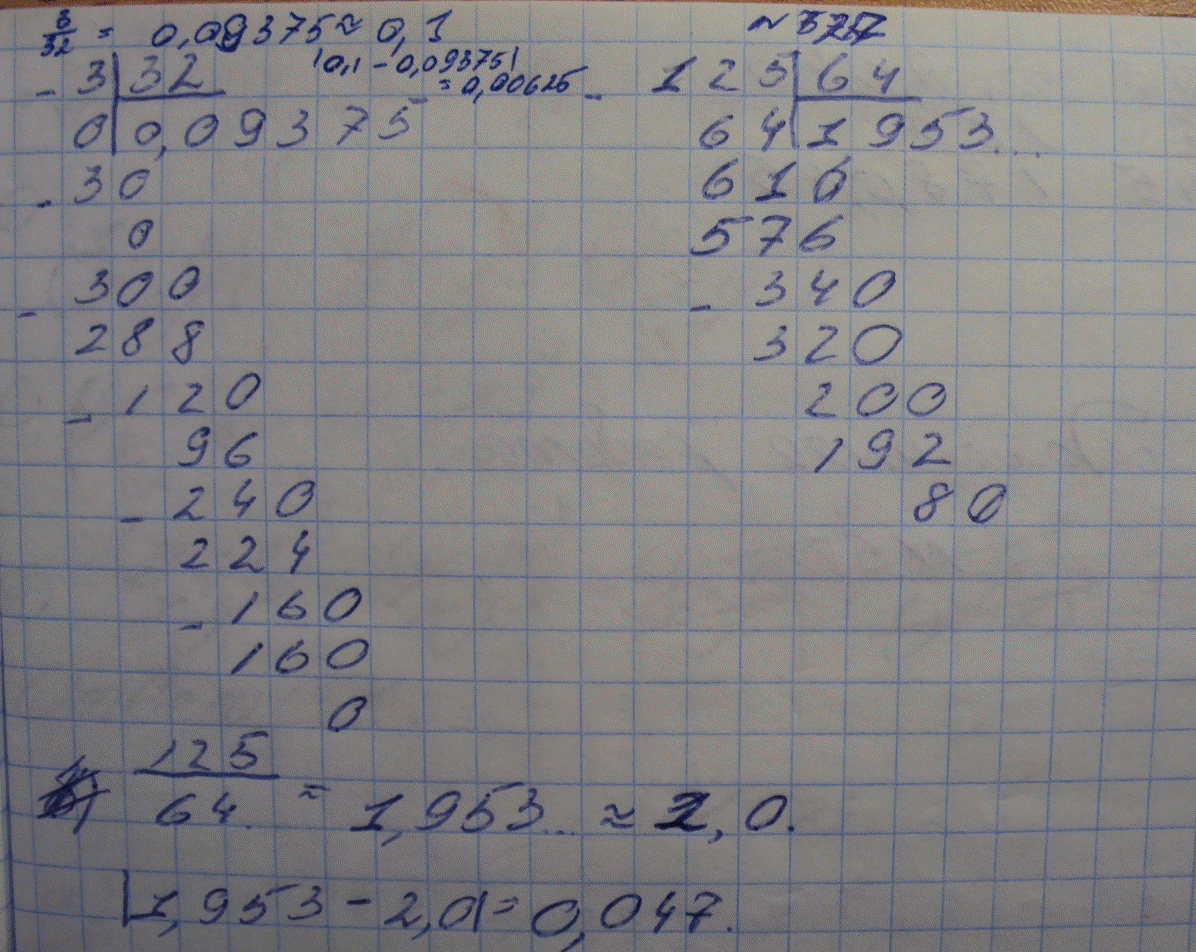 3/32 = 0,09375 ≈ 0,1
|0,1 - 0,09375|
= 0,00625
- 3 | 32
0 | 0,09375
- 30
0
- 300
288
- 120
96
- 240
224
- 160
160
0
- 125 | 64
64 | 1953...
610
576
- 340
320
200
192
80
125/64 = 1,953... ≈ 2,0.
|1,953 - 2,0| = 0,047.